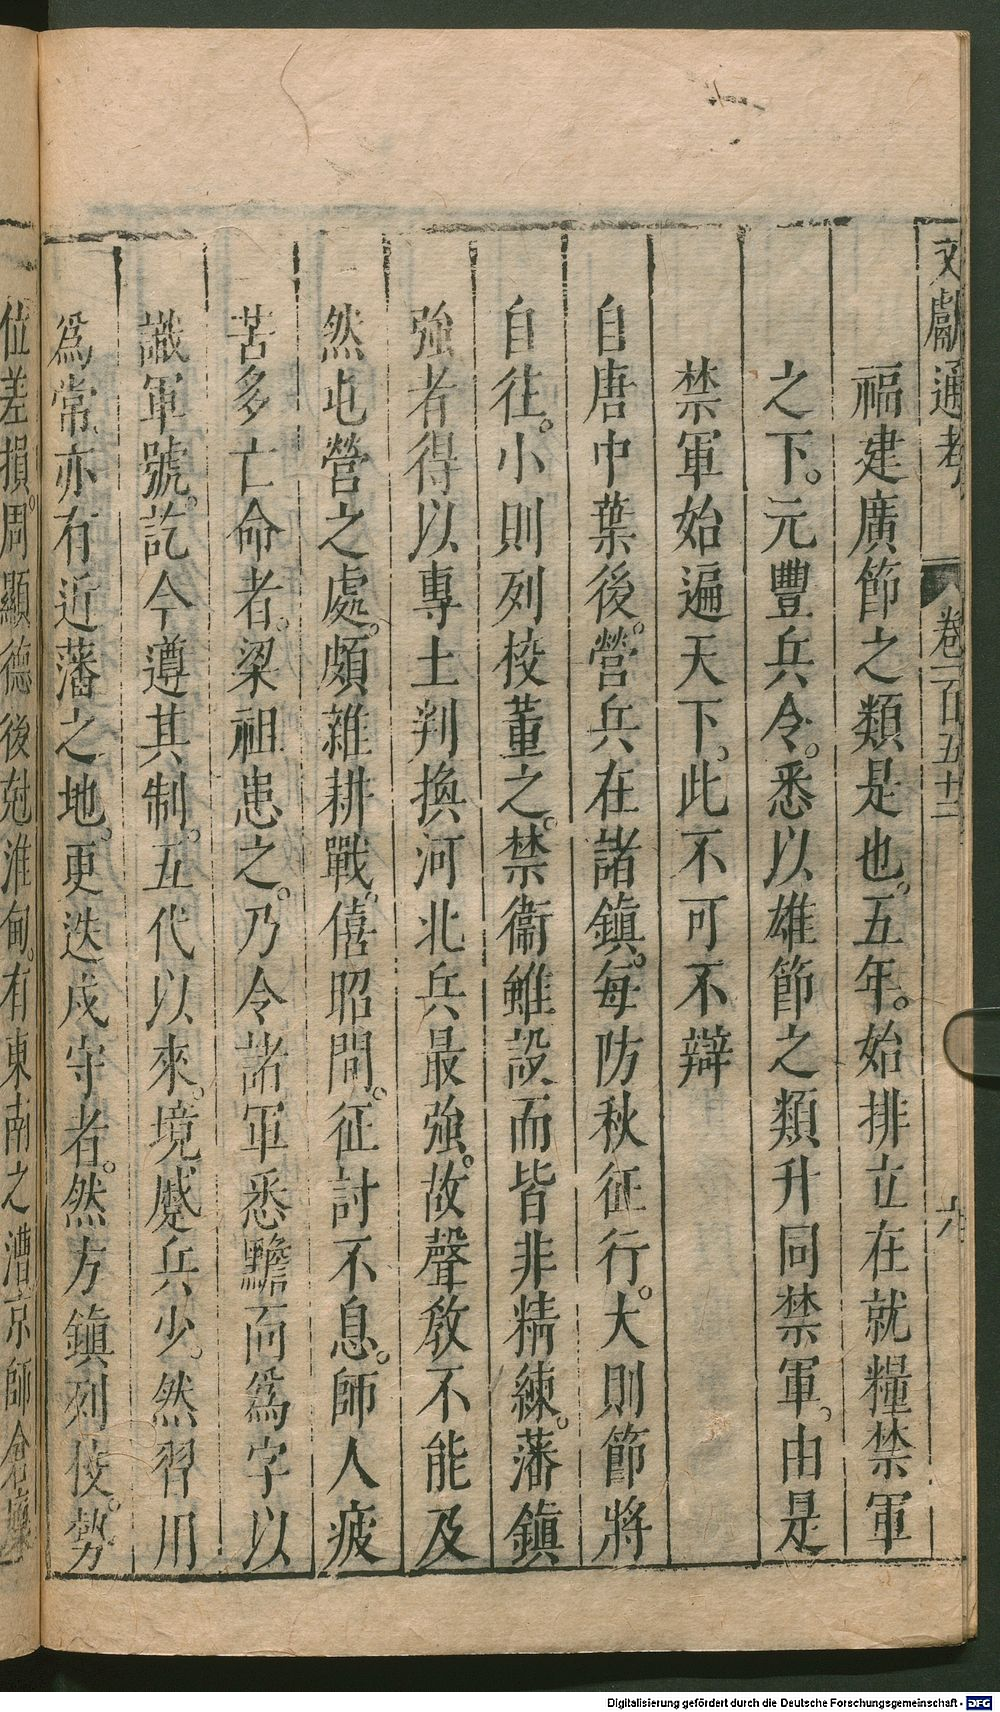 文獻通考 卷一百五十二 六
福建廣節之類是也。五年。始排立在就糧禁軍
之下。元豐兵令。悉以雄節之類升同禁軍。由是
禁軍始遍天下。此不可不辯
自唐中葉後。營兵在諸鎮。每防秋征行。大則節將
自往。小則列校董之。禁衞雖設而皆非精練。藩鎮
強者得以專土判換河北兵最強。故聲教不能及
然屯營之處。頗雜耕戰。僖昭間。征討不息。師人疲
苦多亡命者。梁祖患之。乃令諸軍悉黵面爲字以
識軍號。訖今遵其制。五代以來。境蹙兵少。然習用
爲常亦有近藩之地。更迭戍守者。然方鎮列校。勢
位差損。周顯德後剋淮甸。有東南之漕京師倉廩
Digitalisierung gefördert durch die Deutsche Forschungsgemeinschaft - DFG